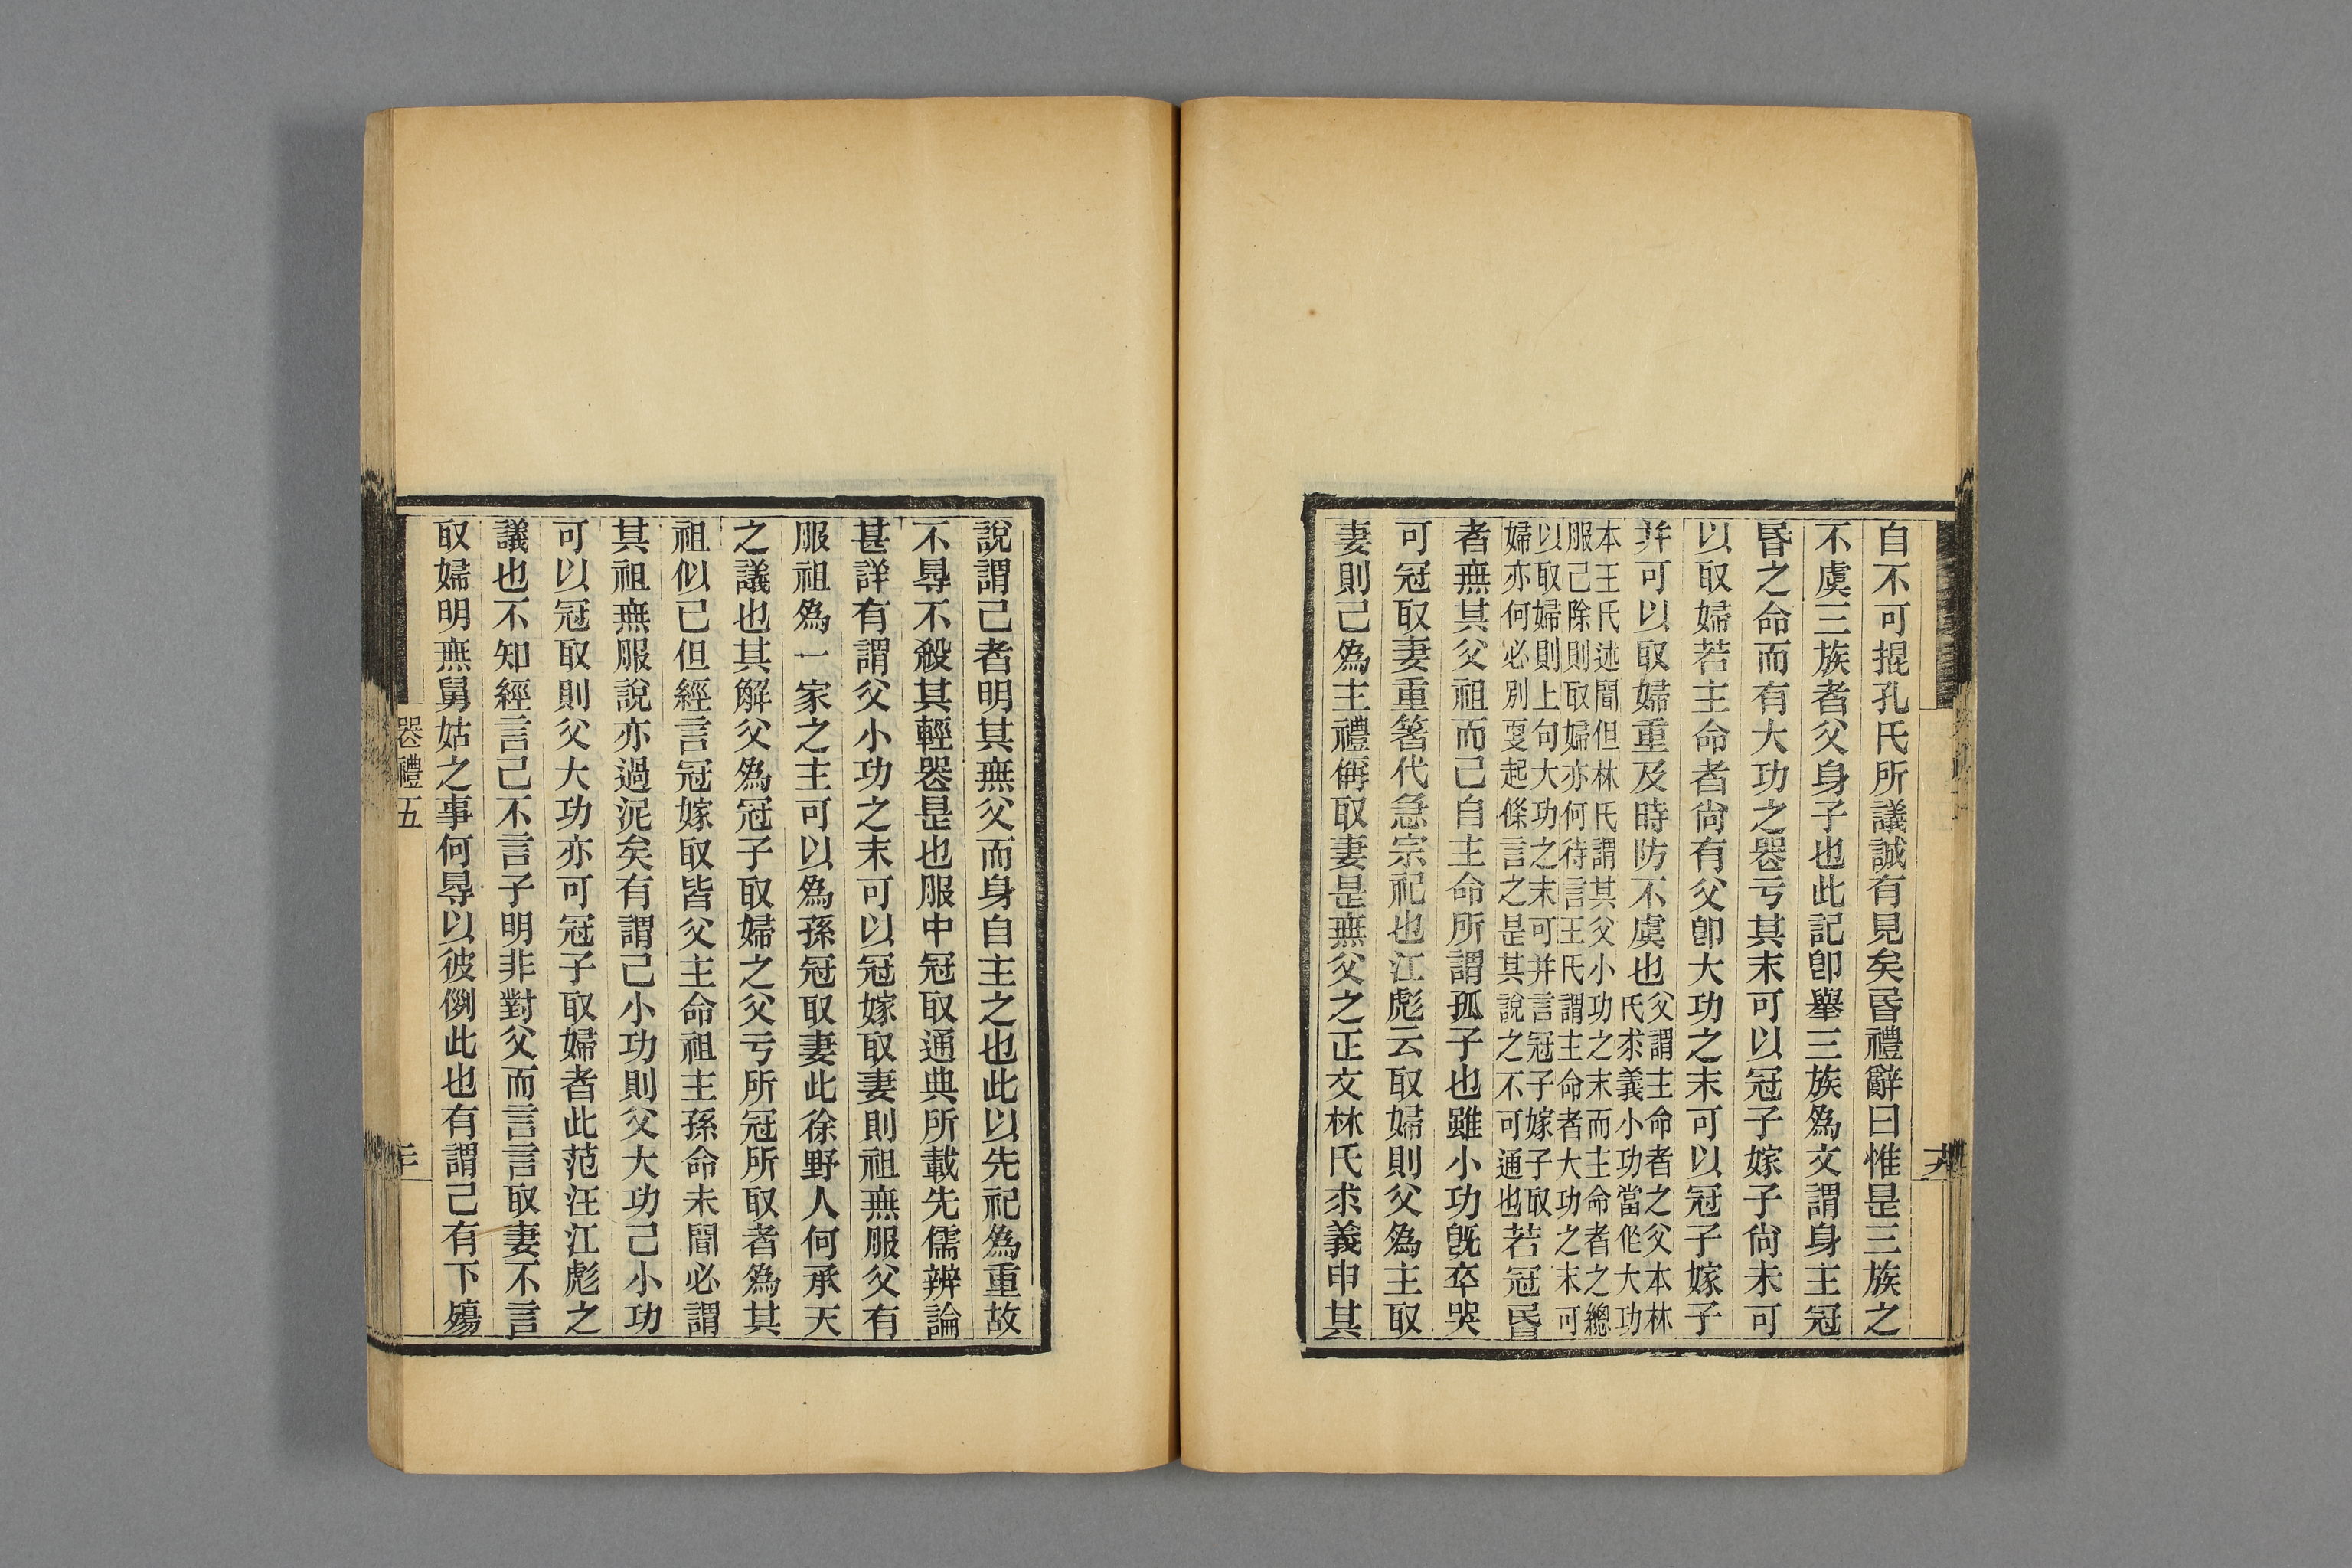 自不可掍孔氏所議誠有見矣昬禮辭曰惟是三族之
不虞三族者父身子也此記卽擧三族爲文謂身主冠
昬之命而有大功之䘮亏其末可以冠子嫁子尙未可
以取婦若主命者尙有父卽大功之末可以冠子嫁子
幷可以取婦重及時防不虞也父謂主命者之父本林
氏求義小功當作大功
本王氏述聞但林氏謂其父小功之末而主命者之緦
服已除則取婦亦何待言王氏謂主命者大功之末可
以取婦則上句大功之末可并言冠子嫁子取
婦亦何必別㪅起條言之是其說之不可通也若冠昬
者無其父祖而己自主命所謂孤子也雖小功旣卒哭
可冠取妻重箸代急宗祀也江彪云取婦則父爲主取
妻則己爲主禮偁取妻是無父之正文林氏求義申其
說謂己者明其無父而身自主之也此以先祀爲重故
不㝵不殺其輕䘮是也服中冠取通典所載先儒辨論
甚詳有謂父小功之末可以冠嫁取妻則祖無服父有
服祖爲一家之主可以爲孫冠取妻此徐野人何承天
之議也其解父爲冠子取婦之父亏所冠所取者爲其
祖似已但經言冠嫁取皆父主命祖主孫命未聞必謂
其祖無服說亦過泥矣有謂己小功則父大功己小功
可以冠取則父大功亦可冠子取婦者此范汪江彪之
議也不知經言己不言子明非對父而言言取妻不言
取婦明無舅姑之事何㝵以彼例此也有謂己有下殤
䘮禮五